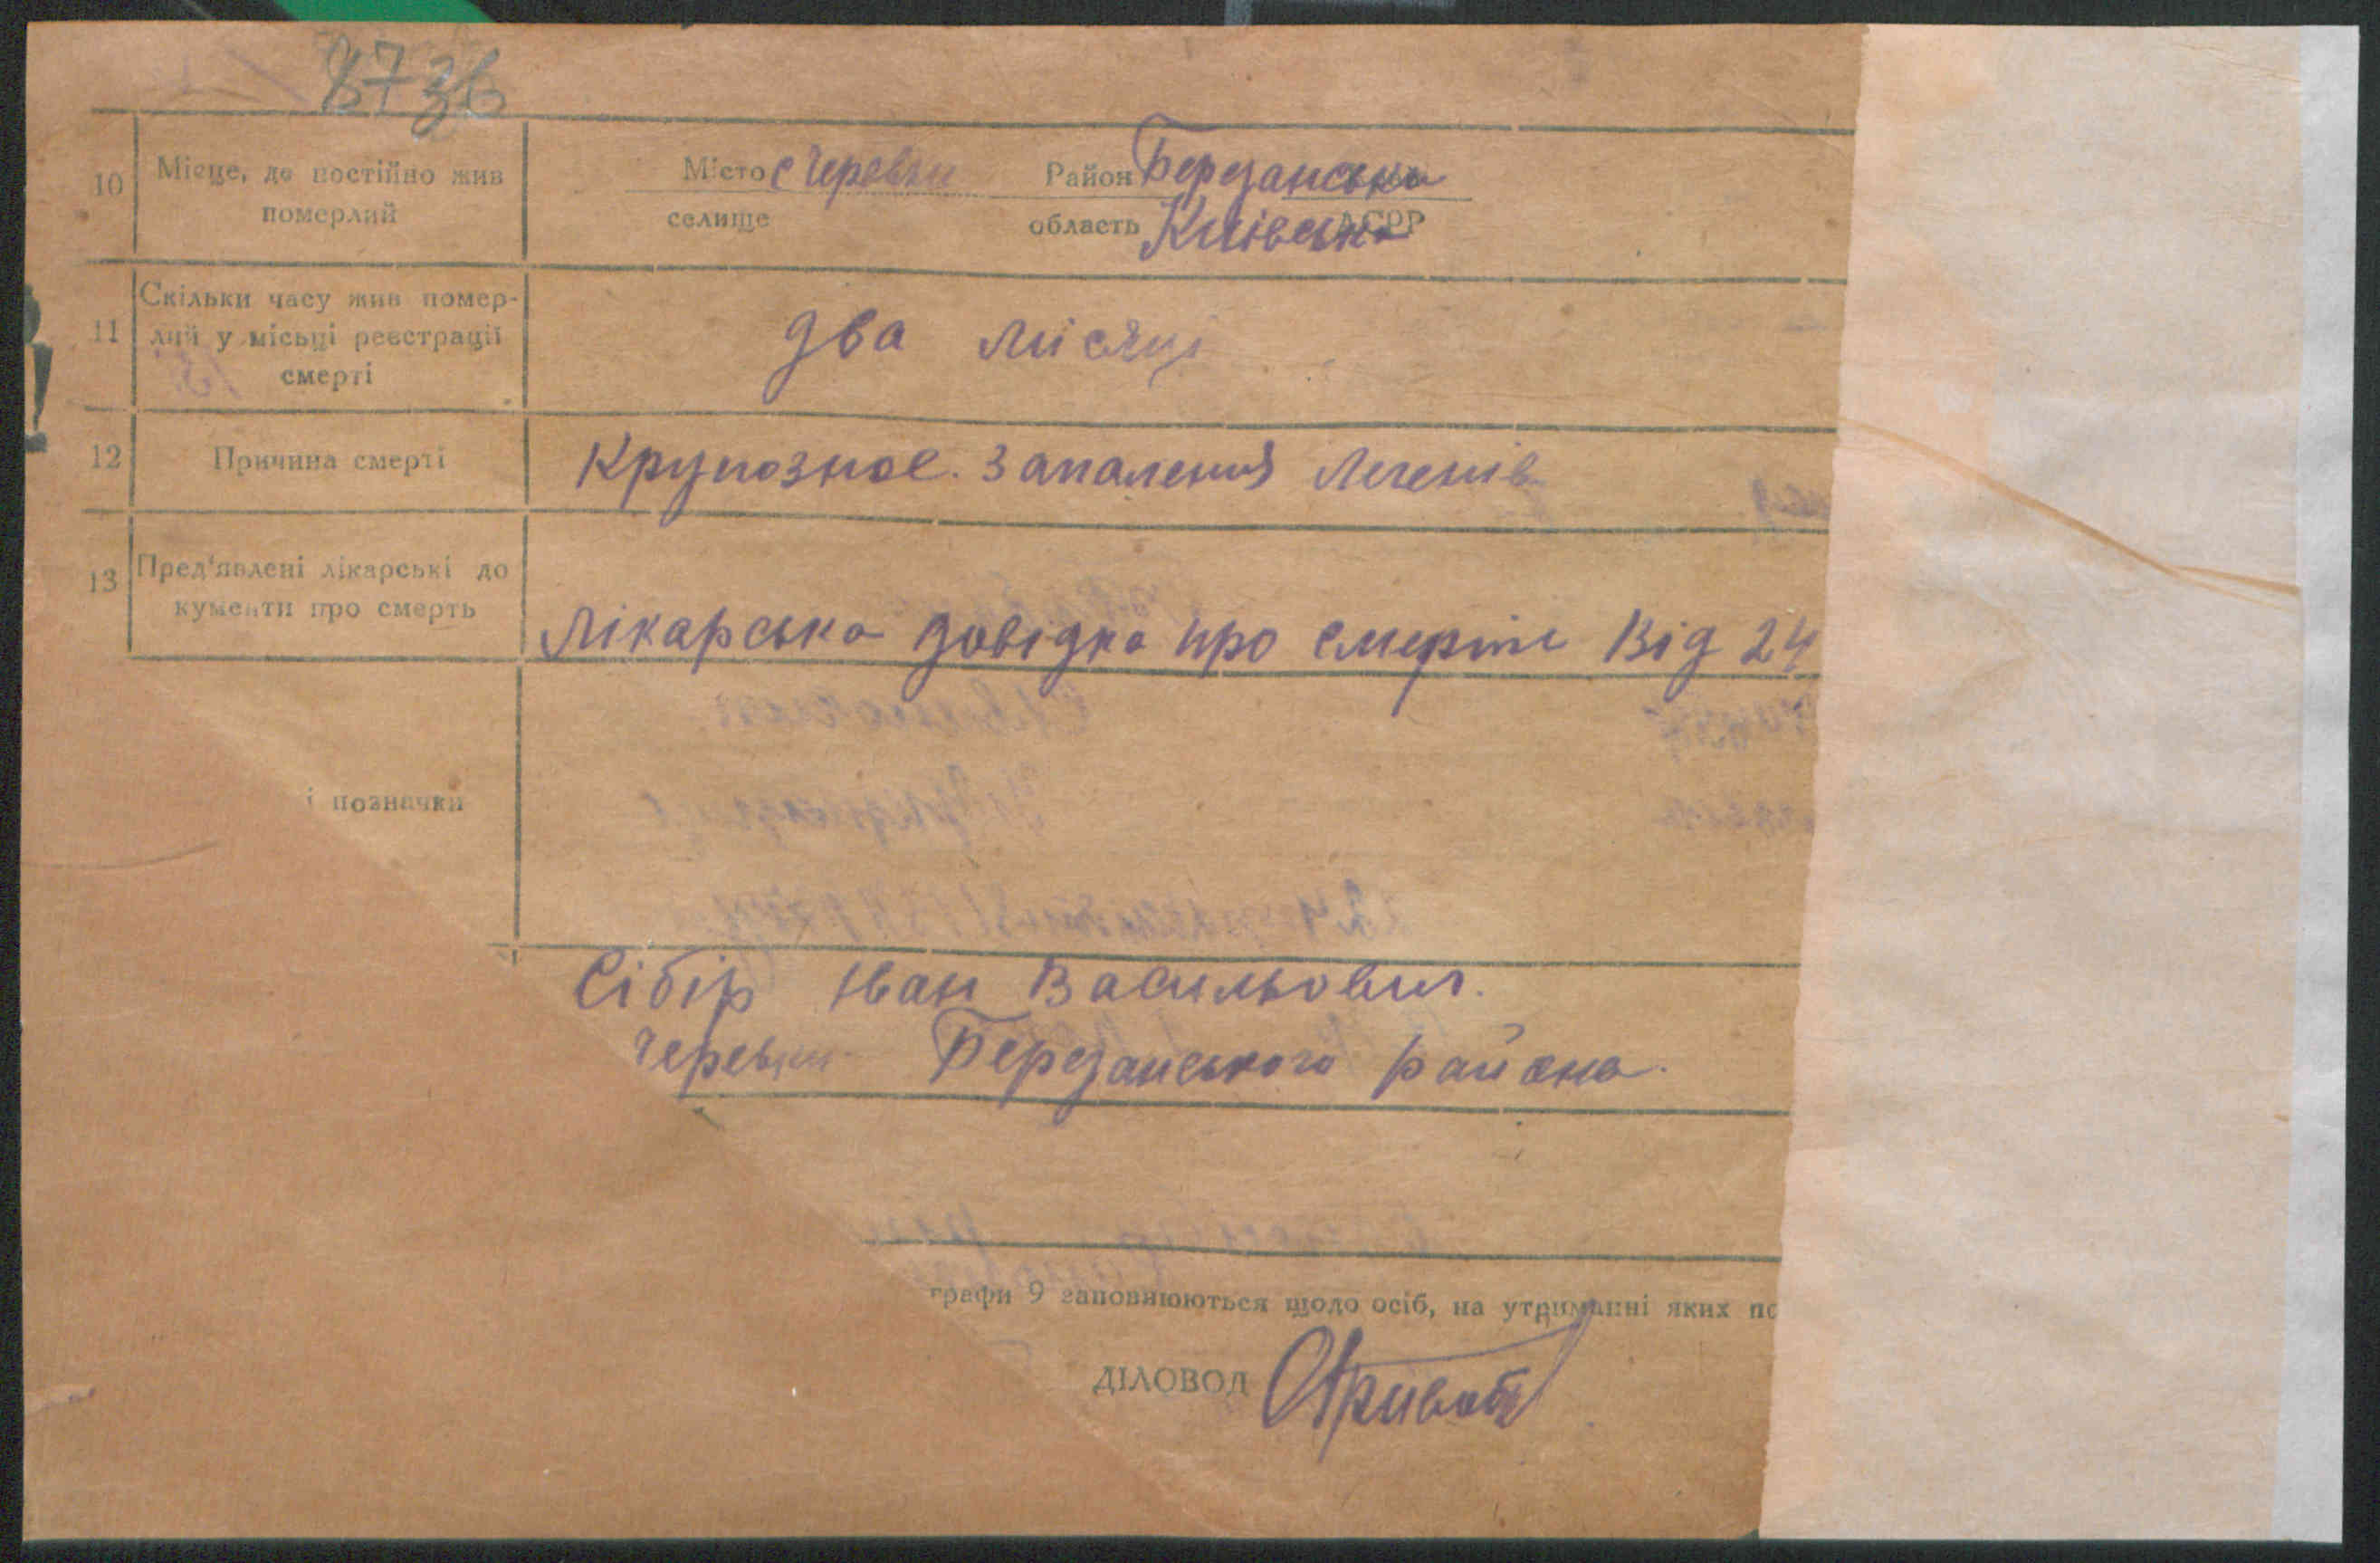 8736
10 Місце, де постійно жив Місто с Черевки Район Березанська
померлий селище область Київська АСРР
11 Скільки часу жив помер-
лий у місьці реєстрації два місяці
смерті
12 Причина смерті Крупозное. Запаления легенів
13 Пред'явлені лікарські до
кументи про смерть Лікарська довідка про смерть Від 24
і позначки
Сібір Іван Васильович.
Черевки Березанського района.
графи 9 заповнюються щодо осіб, на утриманні яких по
ДІЛОВОД